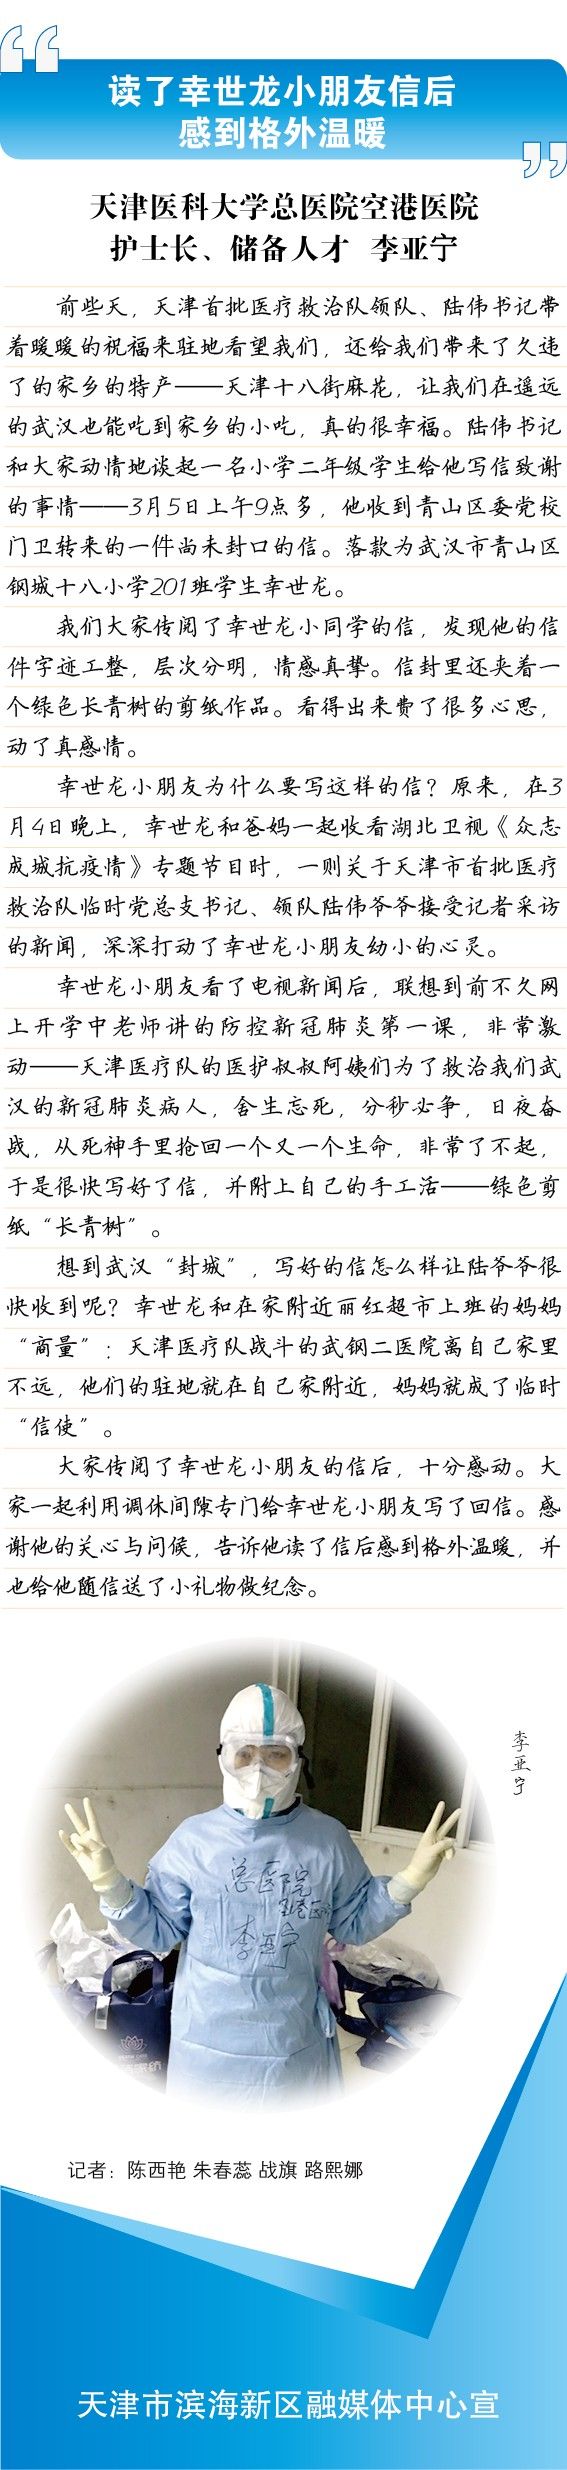 读了幸世龙小朋友信后
感到格外温暖
天津医科大学总医院空港医院
护士长、储备人才 李亚宁
前些天，天津首批医疗救治队领队、陆伟书记带
着暖暖的祝福来驻地看望我们，还给我们带来了久违
了的家乡的特产——天津十八街麻花，让我们在遥远
的武汉也能吃到家乡的小吃，真的很幸福。陆伟书记
和大家动情地谈起一名小学二年级学生给他写信致谢
的事情——3月5日上午9点多，他收到青山区委党校
门卫转来的一件尚未封口的信。落款为武汉市青山区
钢城十八小学201班学生幸世龙。
我们大家传阅了幸世龙小同学的信，发现他的信
件字迹工整，层次分明，情感真挚。信封里还夹着一
个绿色长青树的剪纸作品。看得出来费了很多心思，
动了真感情。
幸世龙小朋友为什么要写这样的信？原来，在3
月4日晚上，幸世龙和爸妈一起收看湖北卫视《众志
成城抗疫情》专题节目时，一则关于天津市首批医疗
救治队临时党总支书记、领队陆伟爷爷接受记者采访
的新闻，深深打动了幸世龙小朋友幼小的心灵。
幸世龙小朋友看了电视新闻后，联想到前不久网
上开学中老师讲的防控新冠肺炎第一课，非常激
动——天津医疗队的医护叔叔阿姨们为了救治我们武
汉的新冠肺炎病人，舍生忘死，分秒必争，日夜奋
战，从死神手里抢回一个又一个生命，非常了不起，
于是很快写好了信，并附上自己的手工活——绿色剪
纸“长青树”。
想到武汉“封城”，写好的信怎么样让陆爷爷很
快收到呢？幸世龙和在家附近丽红超市上班的妈妈
“商量”：天津医疗队战斗的武钢二医院离自己家里
不远，他们的驻地就在自己家附近，妈妈就成了临时
“信使”。
大家传阅了幸世龙小朋友的信后，十分感动。大
家一起利用调休间隙专门给幸世龙小朋友写了回信。感
谢他的关心与问候，告诉他读了信后感到格外温暖，并
也给他随信送了小礼物做纪念。
李亚宁
总医院
空港医院
李亚宁
记者：陈西艳 朱春蕊 战旗 路熙娜
天津市滨海新区融媒体中心宣